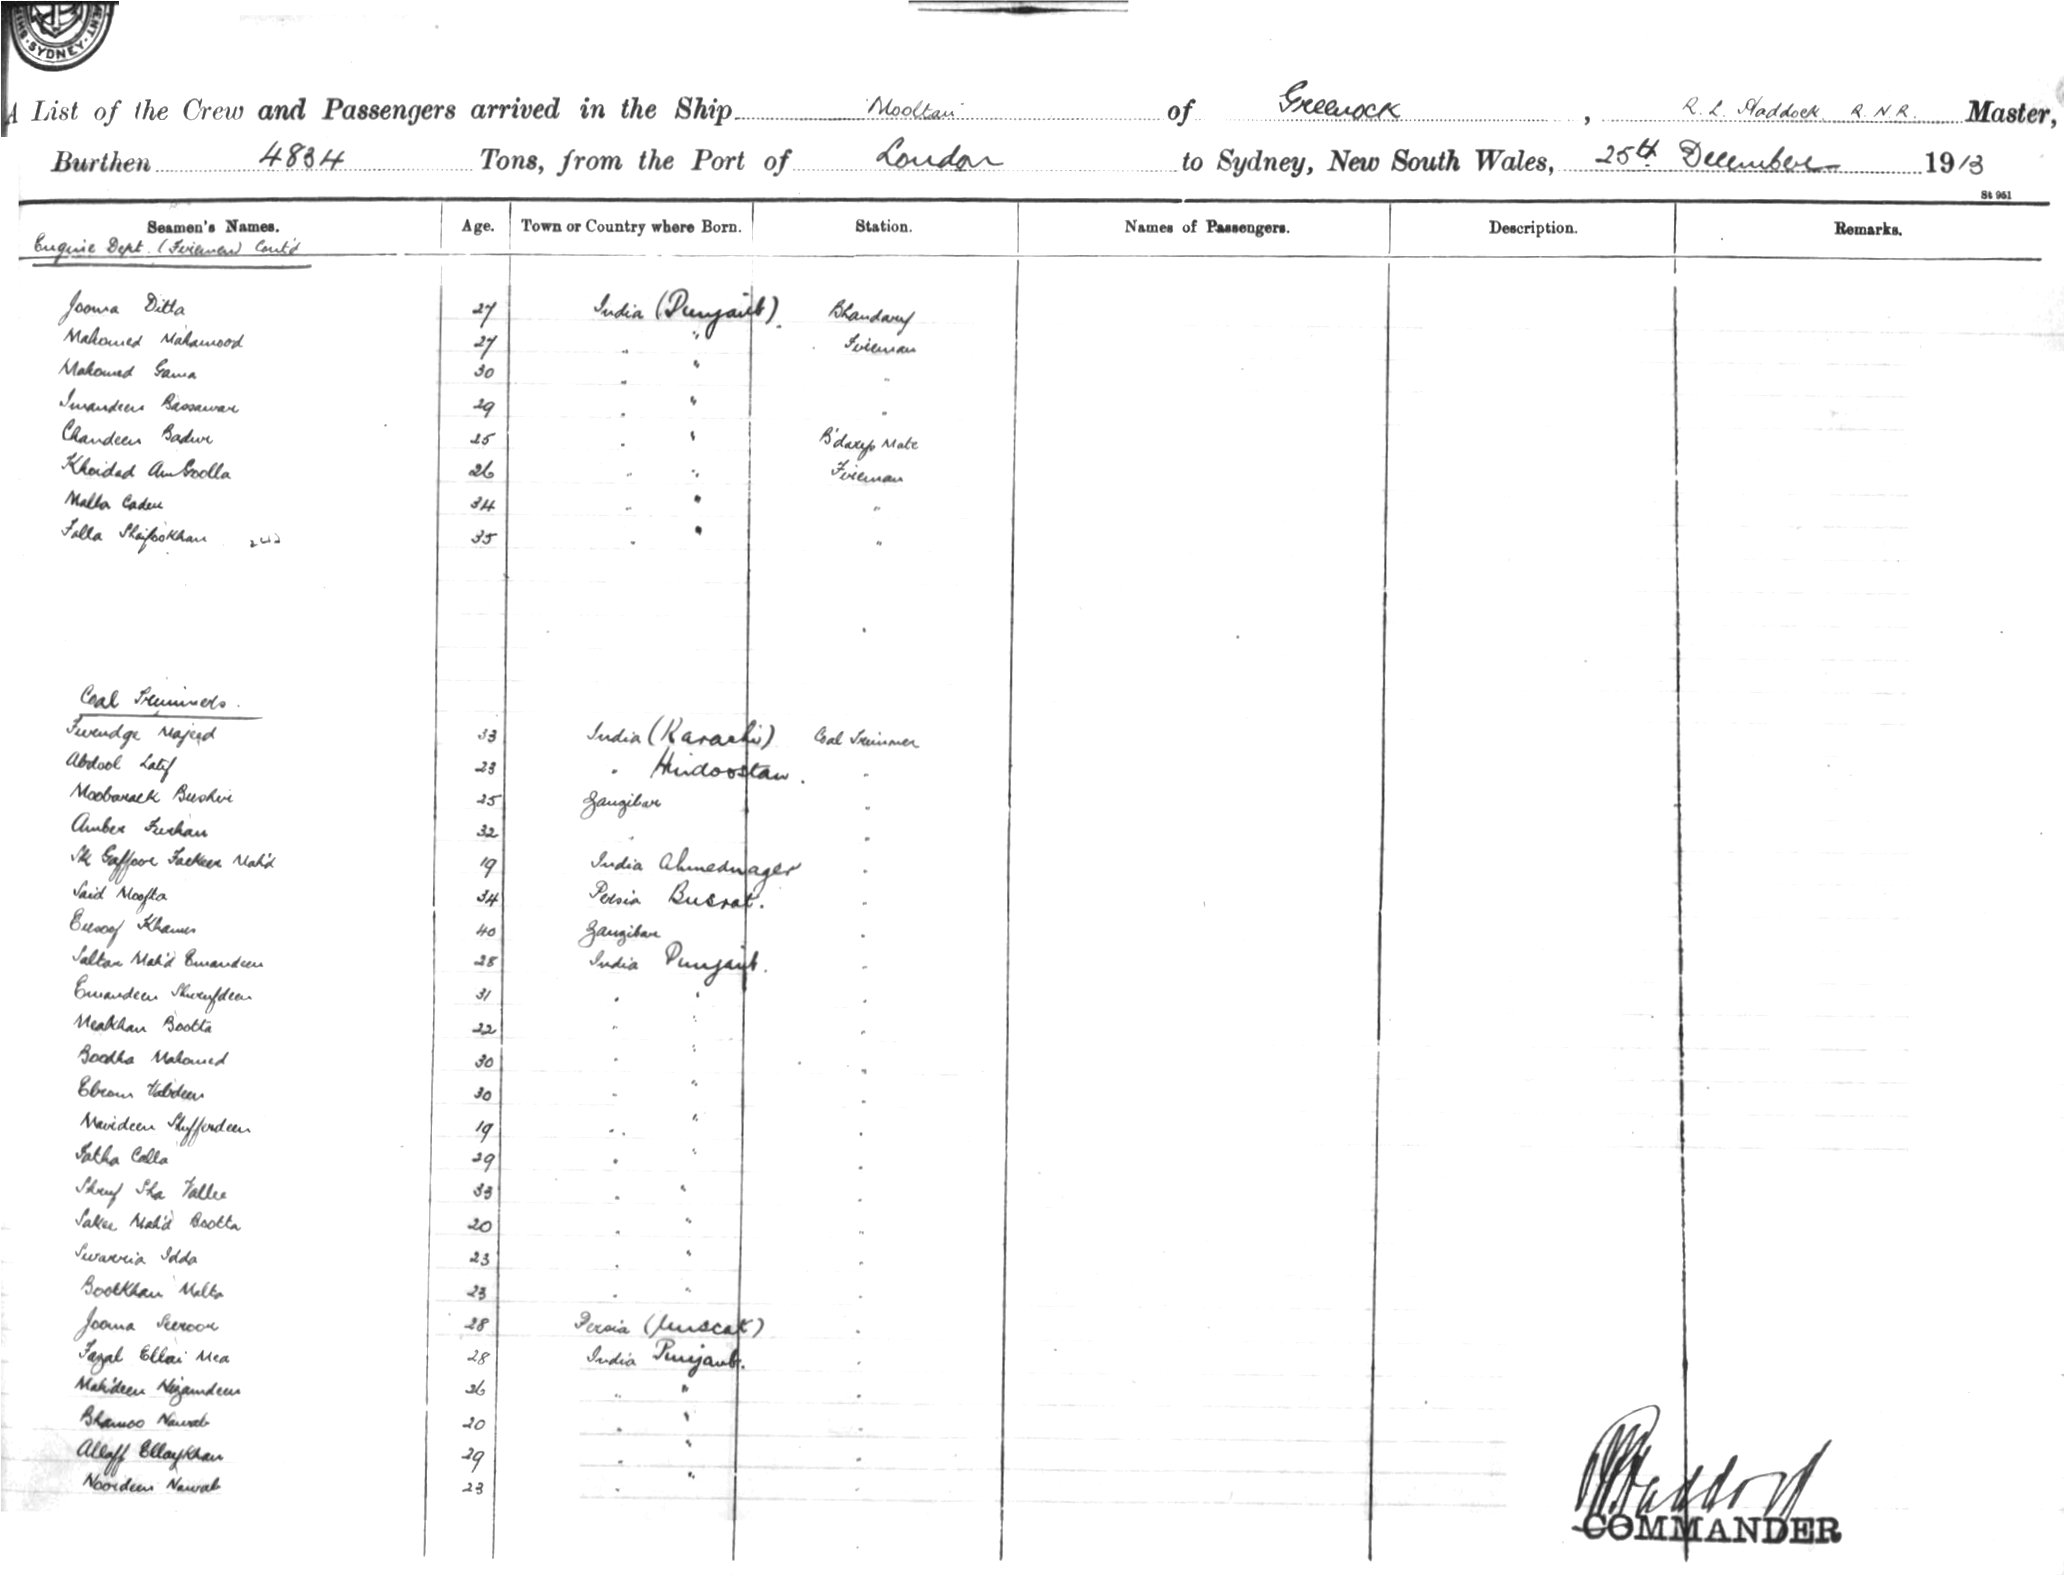 SYDNEY
A List of the Crew and Passengers arrived in the Ship Mooltan of Greenock, R. L. Haddock R.N.R. Master,
Burthen 4834 Tons, from the Port of London to Sydney, New South Wales, 25th December 1913
St 951
Seamen's Names. Age. Town or Country where Born. Station. Names of Passengers. Description. Remarks.
Engine Dept. (Firemen) Cont'd
Jooma Ditta 27 India (Punjaub). Bhandary
Mahomed Mahamood 27 " " Fireman
Mahomed Gama 30 " " "
Imandeen Bassawar 29 " " "
Chandeen 25 " " B'darys Mate
Khoidad 26 " " Fireman
Malla 34 " " "
Falla 35 " " "
Coal Trimmers.
Majeed 33 India (Karachi) Coal Trimmer
Abdool Latif 23 " Hindoostan. "
Moobarack 25 Zanzibar "
Amber Furhan 32 " "
Sk Gaffoor Fakeer Mah'd 19 India Ahmednager "
Said Moofta 34 Persia Busrat. "
Eusoof Khames 40 Zanzibar "
Saltan Mah'd Emandeen 28 India Punjaub. "
Emandeen 31 " " "
Meakhan Bootta 22 " " "
Boodha Mahomed 30 " " "
30 " " "
19 " " "
Fatha Calla 29 " " "
Sha Vallee 33 " " "
Mah'd Bootta 20 " " "
Idda 23 " " "
Bootkhan Malta 23 " " "
Jooma Seeroor 28 Persia (Muscat) "
Fazal Ellai Mea 28 India Punjaub. "
Mahdeen Nizamdeen 26 " " "
Bhamoo Nawab 20 " " "
Allaff Ellaykhan 29 " " "
Noordeen Nawab 23 " " "
R L Haddock
COMMANDER